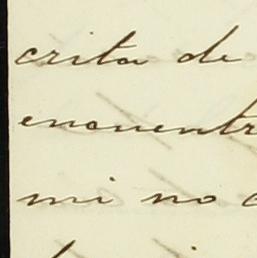 crita de
encuentr
mi no